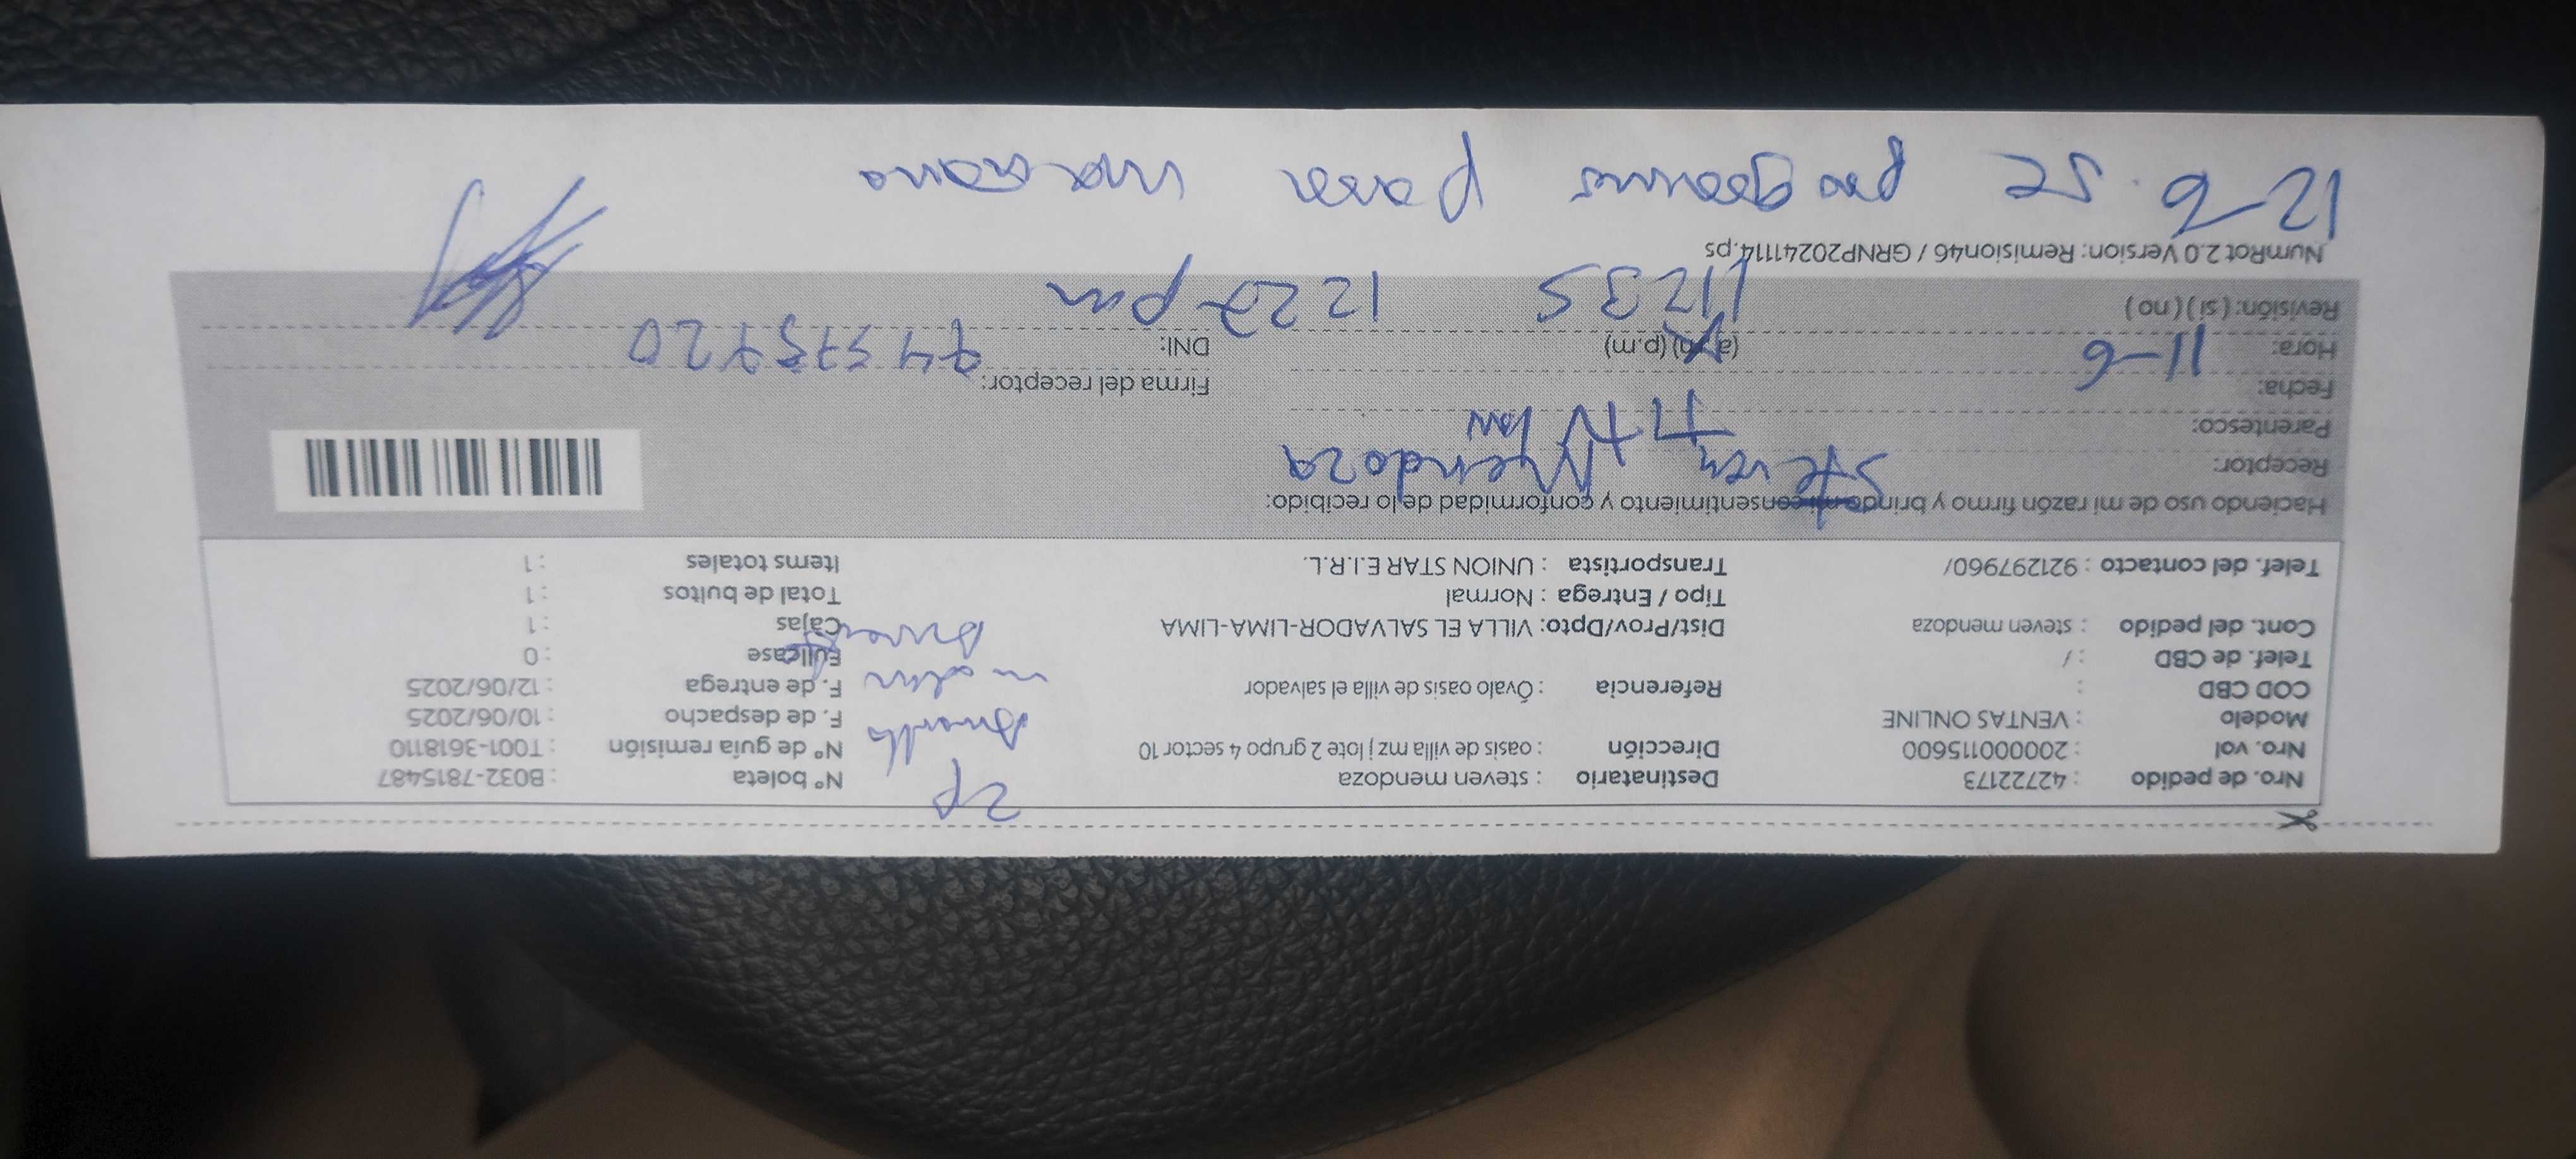 Nro. de pedido : 42722173 Destinatario : steven mendoza Nº boleta : B032-7815487
Nro. vol : 20000115600 Dirección : oasis de villa mz j lote 2 grupo 4 sector 10 Nº de guía remisión : T001-3618110
Modelo : VENTAS ONLINE F. de despacho : 10/06/2025
COD CBD : Referencia : Óvalo oasis de villa el salvador F. de entrega : 12/06/2025
Telef. de CBD : / Fullcase : 0
Cont. del pedido : steven mendoza Dist/Prov/Dpto: VILLA EL SALVADOR-LIMA-LIMA Cajas : 1
Tipo / Entrega : Normal Total de bultos : 1
Telef. del contacto : 921297960/ Transportista : UNION STAR E.I.R.L. Items totales : 1
2p
Haciendo uso de mi razón firmo y brindo mi consentimiento y conformidad de lo recibido:
Receptor: Steven Mendoza
Parentesco:
Fecha: 11-6 Firma del receptor:
Hora: (a.m) (p.m) DNI:
Revisión: ( si ) ( no ) 1235 1227 pm
NumRot 2.0 Version: Remision46 / GRNP20241114.ps
12-6. Se para